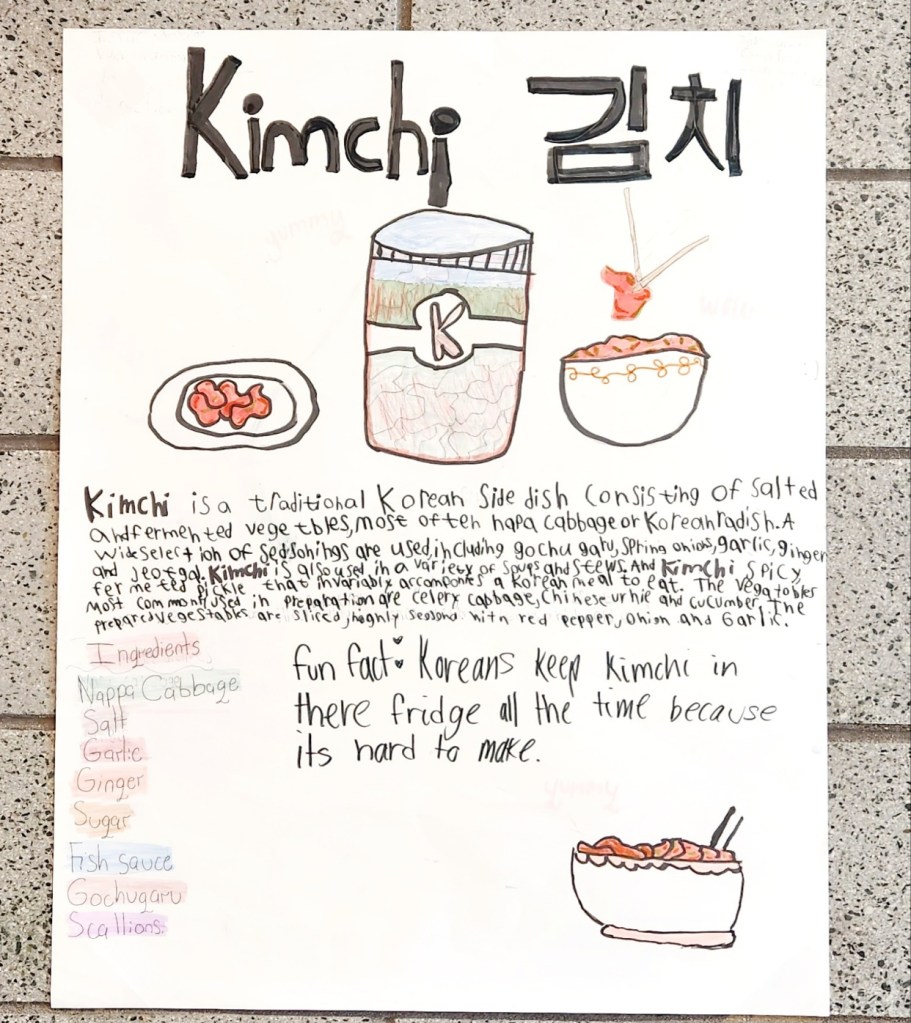 Kimchi 김치
K
Kimchi is a traditional Korean Side dish Consisting of salted
and fermented vegetbles, most often napa cabbage or Korean radish. A
wide selection of seasonings are used, including gochugaru, spring onions, garlic, ginger
and jeotgal. Kimchi is also used in a variety of soups and stews. And Kimchi spicy
fermeted pickle that invariably accompanies a Korean meal to eat. The vegatobles
Most commonly used in preparation are celery cabbage, Chinese and cucumber. The
prepared vegestables are sliced, highly seasond with red pepper, onion and Garlic.
Ingredients
Nappa Cabbage
Salt
Garlic
Ginger
Sugar
Fish sauce
Gochugaru
Scallions
fun fact: Koreans keep kimchi in
there fridge all the time because
its hard to make.